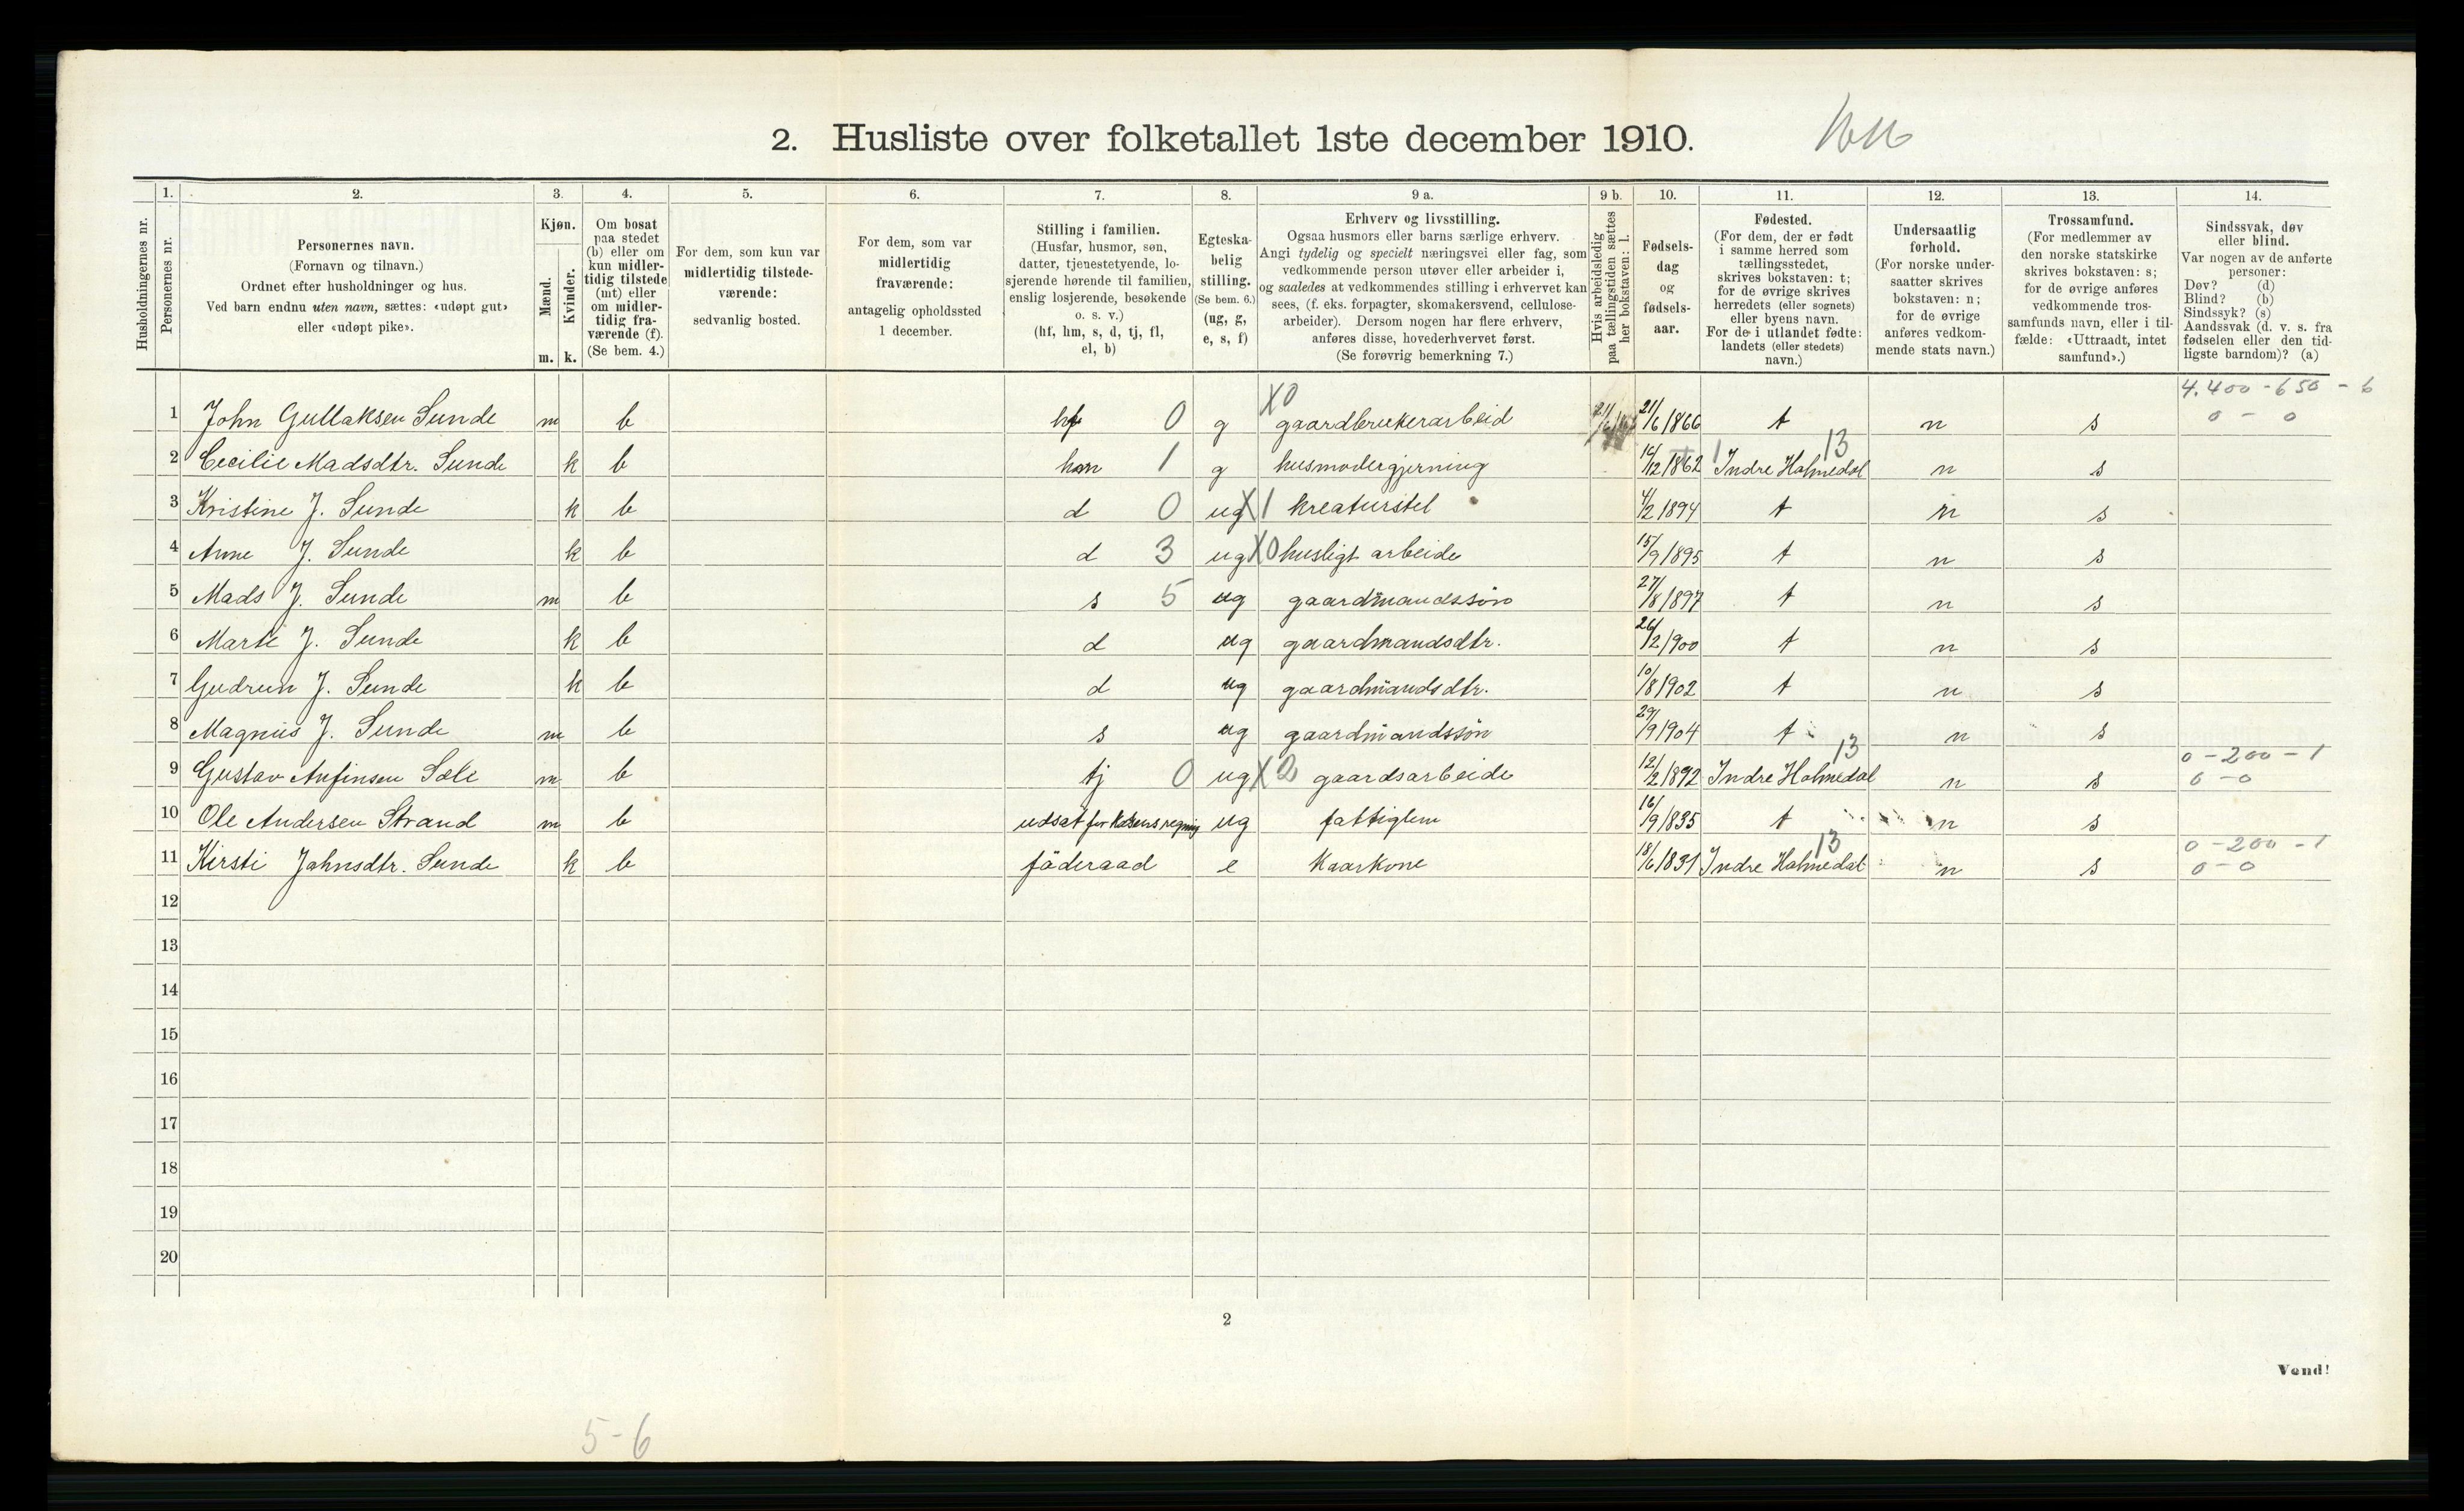 2. Husliste over folketallet 1ste december 1910.
Husholdningernes nr.
1.
Personernes nr.
2.
Personernes navn.
(Fornavn og tilnavn.)
Ordnet efter husholdninger og hus.
Ved barn endnu uten navn, sættes: «udøpt gut»
eller «udøpt pike».
3.
Kjøn.
Mænd.
Kvinder.
m. k.
4.
Om bosat
paa stedet
(b) eller om
kun midler-
tidig tilstede
(mt) eller
om midler-
tidig fra-
værende (f).
(Se bem. 4.)
5.
For dem, som kun var
midlertidig tilstede-
værende:
sedvanlig bosted.
6.
For dem, som var
midlertidig
fraværende:
antagelig opholdssted
1 december.
7.
Stilling i familien.
(Husfar, husmor, søn,
datter, tjenestetyende, lo-
sjerende hørende til familien,
enslig losjerende, besøkende
o. s. v.)
(hf, hm, s, d, tj, fl,
el, b)
8.
Egteska-
belig
stilling.
(Se bem. 6.)
(ug, g,
e, s, f)
9 a.
Erhverv og livsstilling.
Ogsaa husmors eller barns særlige erhverv.
Angi tydelig og specielt næringsvei eller fag, som
vedkommende person utøver eller arbeider i,
og saaledes at vedkommendes stilling i erhvervet kan
sees, (f. eks. forpagter, skomakersvend, cellulose-
arbeider). Dersom nogen har flere erhverv,
anføres disse, hovederhvervet først.
(Se forøvrig bemerkning 7.)
9 b.
Hvis arbeidsledig
paa tællingstiden sættes
her bokstaven: l.
10.
Fødsels-
dag
og
fødsels-
aar.
11.
Fødested.
(For dem, der er født
i samme herred som
tællingsstedet,
skrives bokstaven: t;
for de øvrige skrives
herredets (eller sognets)
eller byens navn.
For de i utlandet fødte:
landets (eller stedets)
navn.)
12.
Undersaatlig
forhold.
(For norske under-
saatter skrives
bokstaven: n;
for de øvrige
anføres vedkom-
mende stats navn.)
13.
Trossamfund.
(For medlemmer av
den norske statskirke
skrives bokstaven: s;
for de øvrige anføres
vedkommende tros-
samfunds navn, eller i til-
fælde: «Uttraadt, intet
samfund».)
14.
Sindssvak, døv
eller blind.
Var nogen av de anførte
personer:
Døv? (d)
Blind? (b)
Sindssyk? (s)
Aandssvak (d. v. s. fra
fødselen eller den tid-
ligste barndom)? (a)
4.400 - 650 - 6
1 John Gullaksen Sunde m b hf 0 g X0 gaardbrukerarbeid 21/6 1866 t n s 0 - 0
2 Cecilie Madsdtr. Sunde k b hm 1 g husmodergjerning 14/12 1862 Indre Holmedal 13 n s
3 Kristine J. Sunde k b d 0 ug X1 kreaturstel 4/2 1894 t n s
4 Anne J. Sunde k b d 3 ug X0 husligt arbeide 15/9 1895 t n s
5 Mads J. Sunde m b s 5 ug gaardmandssøn 27/8 1897 t n s
6 Marte J. Sunde k b d ug gaardmandsdtr. 26/2 1900 t n s
7 Gudrun J. Sunde k b d ug gaardmandsdtr. 10/8 1902 t n s
8 Magnus J. Sunde m b s ug gaardmandssøn 29/9 1904 t n s
9 Gustav Anfinsen Sæle m b tj 0 ug X2 gaardsarbeide 12/2 1892 Indre Holmedal 13 n s 0 - 200 - 1
0 - 0
10 Ole Andersen Strand m b udsat for kasens regning ug fattiglem 16/9 1835 t n s
11 Kirsti Jahnsdtr. Sunde k b föderaad e Kaarkone 18/6 1831 Indre Holmedal 13 n s 0 - 200 - 1
0 - 0
12
13
14
15
16
17
18
19
20
2
Vend!
5-6